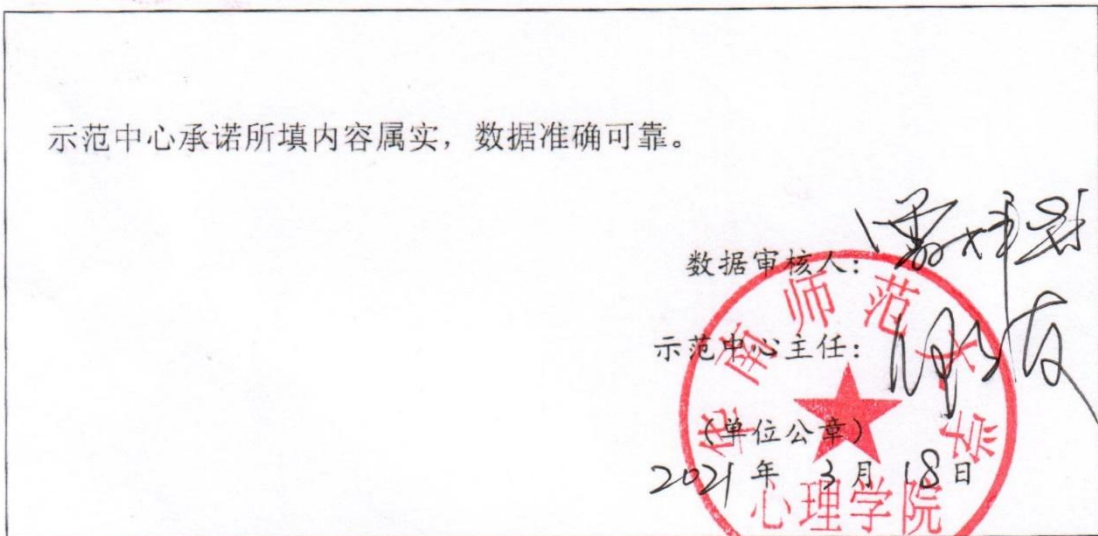 示范中心承诺所填内容属实，数据准确可靠。
数据审核人：
示范中心主任：
（单位公章）
2021年 3月 18日
华南师范大学
心理学院